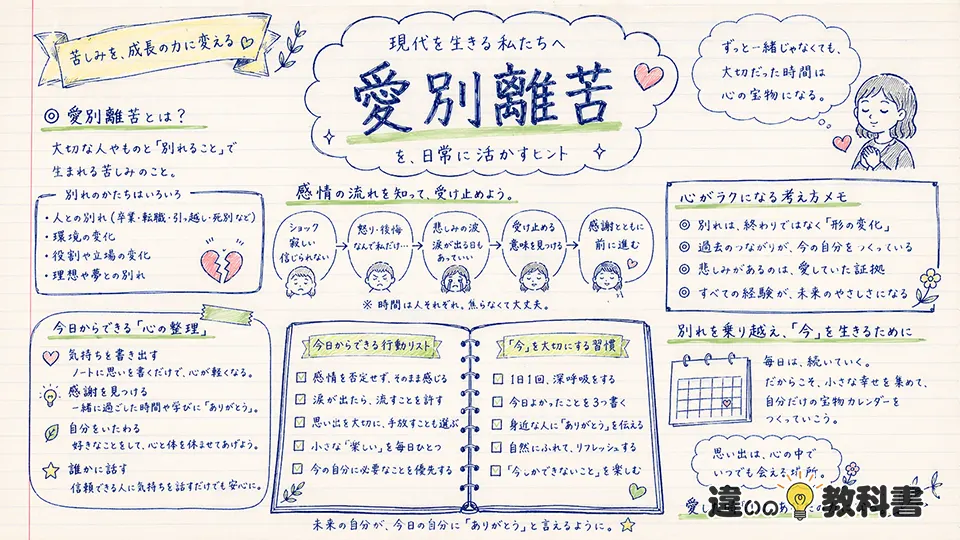 苦しみを、成長の力に変える
現代を生きる私たちへ
愛別離苦
を、日常に活かすヒント
ずっと一緒じゃなくても、
大切だった時間は
心の宝物になる。
◎ 愛別離苦とは？
大切な人やものと「別れること」で
生まれる苦しみのこと。
別れのかたちはいろいろ
・人との別れ（卒業・転職・引っ越し・死別など）
・環境の変化
・役割や立場の変化
・理想や夢との別れ
感情の流れを知って、受け止めよう。
ショック
寂しい
信じられない
怒り・後悔
なんで私だけ…
悲しみの波
涙が出る日も
あっていい
受け止める
意味を見つける
感謝とともに
前に進む
※ 時間は人それぞれ、焦らなくて大丈夫。
心がラクになる考え方メモ
◎ 別れは、終わりではなく「形の変化」
◎ 過去のつながりが、今の自分をつくっている
◎ 悲しみがあるのは、愛していた証拠
◎ すべての経験が、未来のやさしさになる
今日からできる「心の整理」
気持ちを書き出す
ノートに思いを書くだけで、心が軽くなる。
感謝を見つける
一緒に過ごした時間や学びに「ありがとう」。
自分をいたわる
好きなことをして、心と体を休ませてあげよう。
誰かに話す
信頼できる人に気持ちを話すだけでも安心に。
今日からできる行動リスト
感情を否定せず、そのまま感じる
涙が出たら、流すことを許す
思い出を大切に、手放すことも選ぶ
小さな「楽しい」を毎日ひとつ
今の自分に必要なことを優先する
「今」を大切にする習慣
1日1回、深呼吸をする
今日よかったことを3つ書く
身近な人に「ありがとう」を伝える
自然にふれて、リフレッシュする
「今しかできないこと」を楽しむ
未来の自分が、今日の自分に「ありがとう」と言えるように。
別れを乗り越え、「今」を生きるために
毎日は、続いていく。
だからこそ、小さな幸せを集めて、
自分だけの宝物カレンダーを
つくっていこう。
思い出は、心の中で
いつでも会える場所。
愛し
違いの教科書